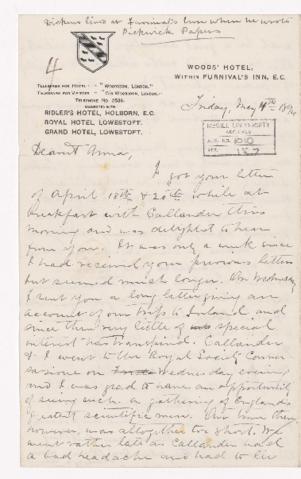 Dickens lived at Furnival's Inn when he wrote
Pickwick Papers
4
WOODS' HOTEL,
WITHIN FURNIVAL'S INN, E.C.
TELEGRAMS FOR HOTEL "WOODSINN, LONDON."
TELEPHONE NO
CONNECTED WITH
RIDLER'S HOTEL, HOLBORN, E.C.
ROYAL HOTEL, LOWESTOFT.
GRAND HOTEL, LOWESTOFT.
Friday, May 4th
McGILL UNIVERSITY
ACC. NO. 1010
REF. 157
Dearest Anna,
I got your letters
of April 18th & 20th while at
breakfast with Callander this
morning and was delighted to hear
from you. It was only a week since
I had received your previous letters
but seemed much longer. On Wednesday
I sent you a long letter giving an
account of our trip to Ireland and
since then very little of special
interest has transpired. Callander
& I went to the Royal Society Conver-
sazione on Wednesday evening
and I was glad to have an opportunity
of seeing such a gathering of England's
greatest scientific men. Our time there
however, was altogether too short. We
went rather late as Callander had
a bad headache and had to lie